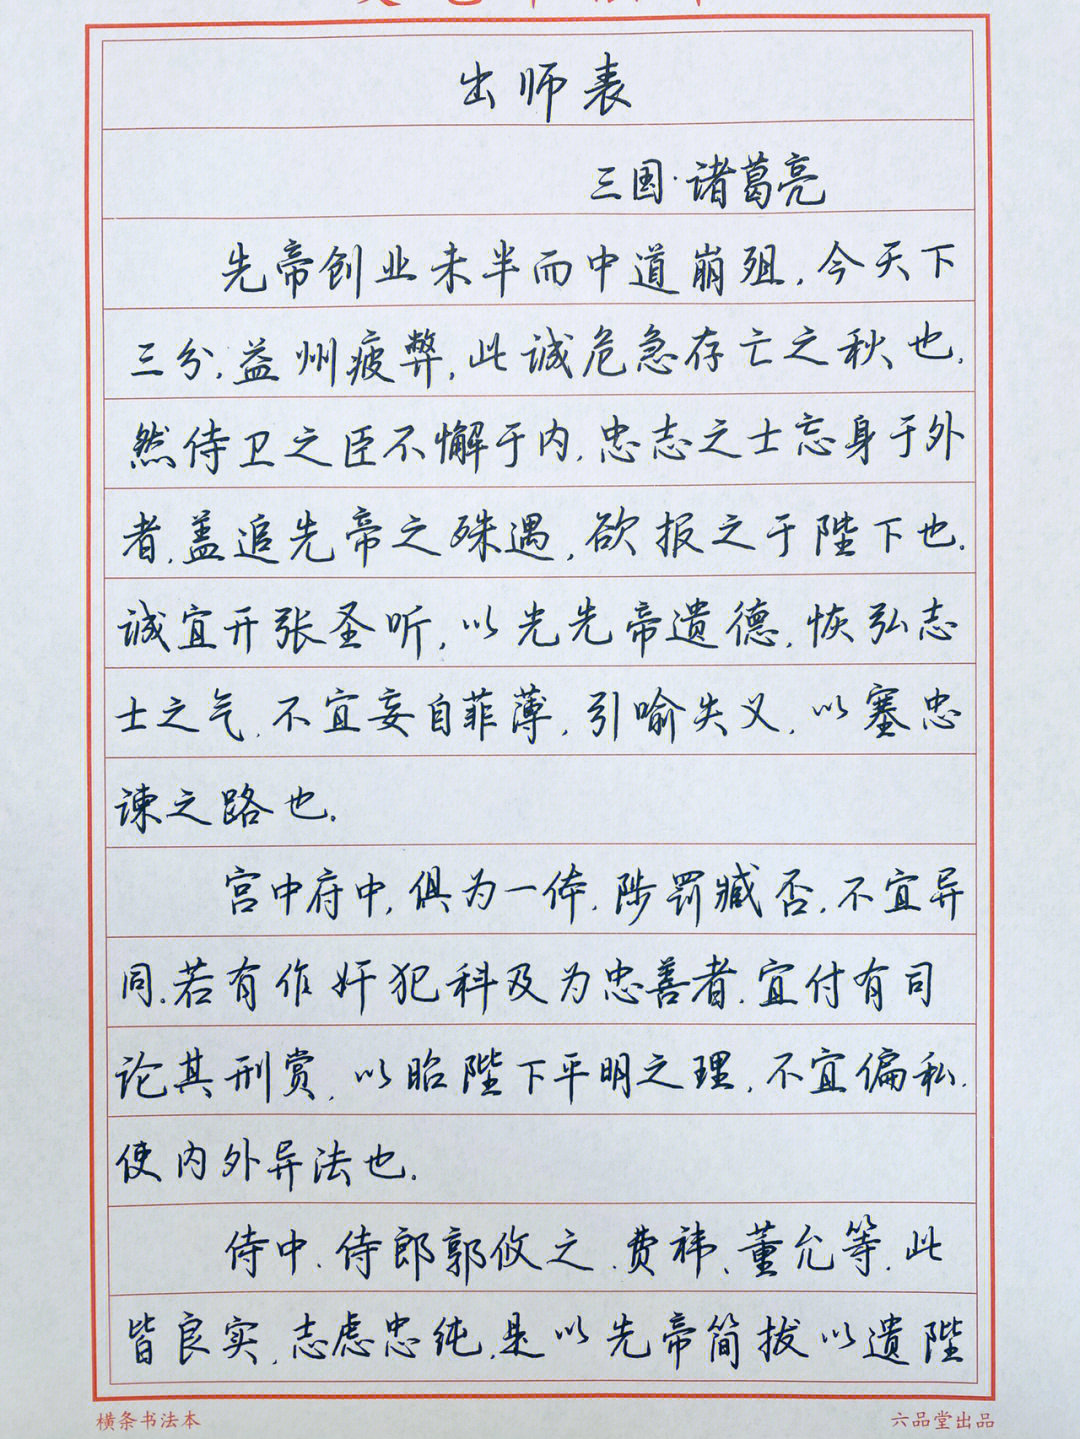 出师表
三国·诸葛亮
先帝创业未半而中道崩殂,今天下
三分,益州疲弊,此诚危急存亡之秋也.
然侍卫之臣不懈于内,忠志之士忘身于外
者,盖追先帝之殊遇,欲报之于陛下也.
诚宜开张圣听,以光先帝遗德,恢弘志
士之气,不宜妄自菲薄,引喻失义,以塞忠
谏之路也.
宫中府中,俱为一体,陟罚臧否,不宜异
同.若有作奸犯科及为忠善者.宜付有司
论其刑赏,以昭陛下平明之理,不宜偏私.
使内外异法也.
侍中、侍郎郭攸之、费祎、董允等,此
皆良实,志虑忠纯,是以先帝简拔以遗陛
横条书法本
六品堂出品